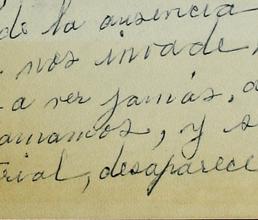 de la ausencia
nos invade
a ver jamás, a
amamos, y s
rial, desaparece